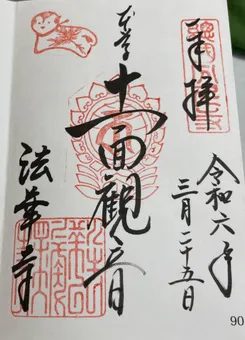 奉拝
令和六年
三月二十五日
本尊
十一面觀音
法華寺
90